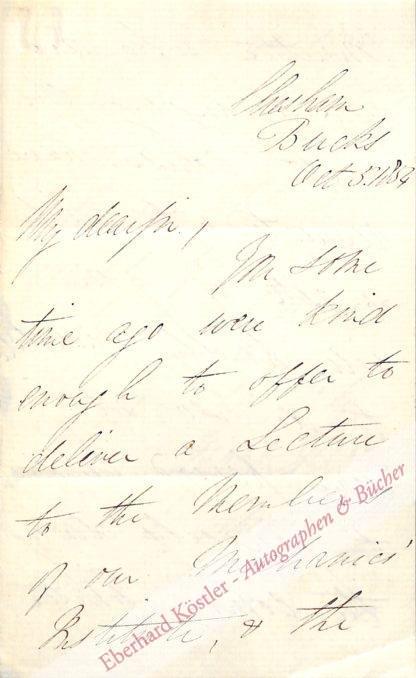 Chesham
Bucks
Oct 5. 1854
My dear Sir,
You some
time ago were kind
enough to offer to
deliver a Lecture
to the Members
of our Mechanics'
Institute, & the
Eberhard Köstler - Autographen & Bücher